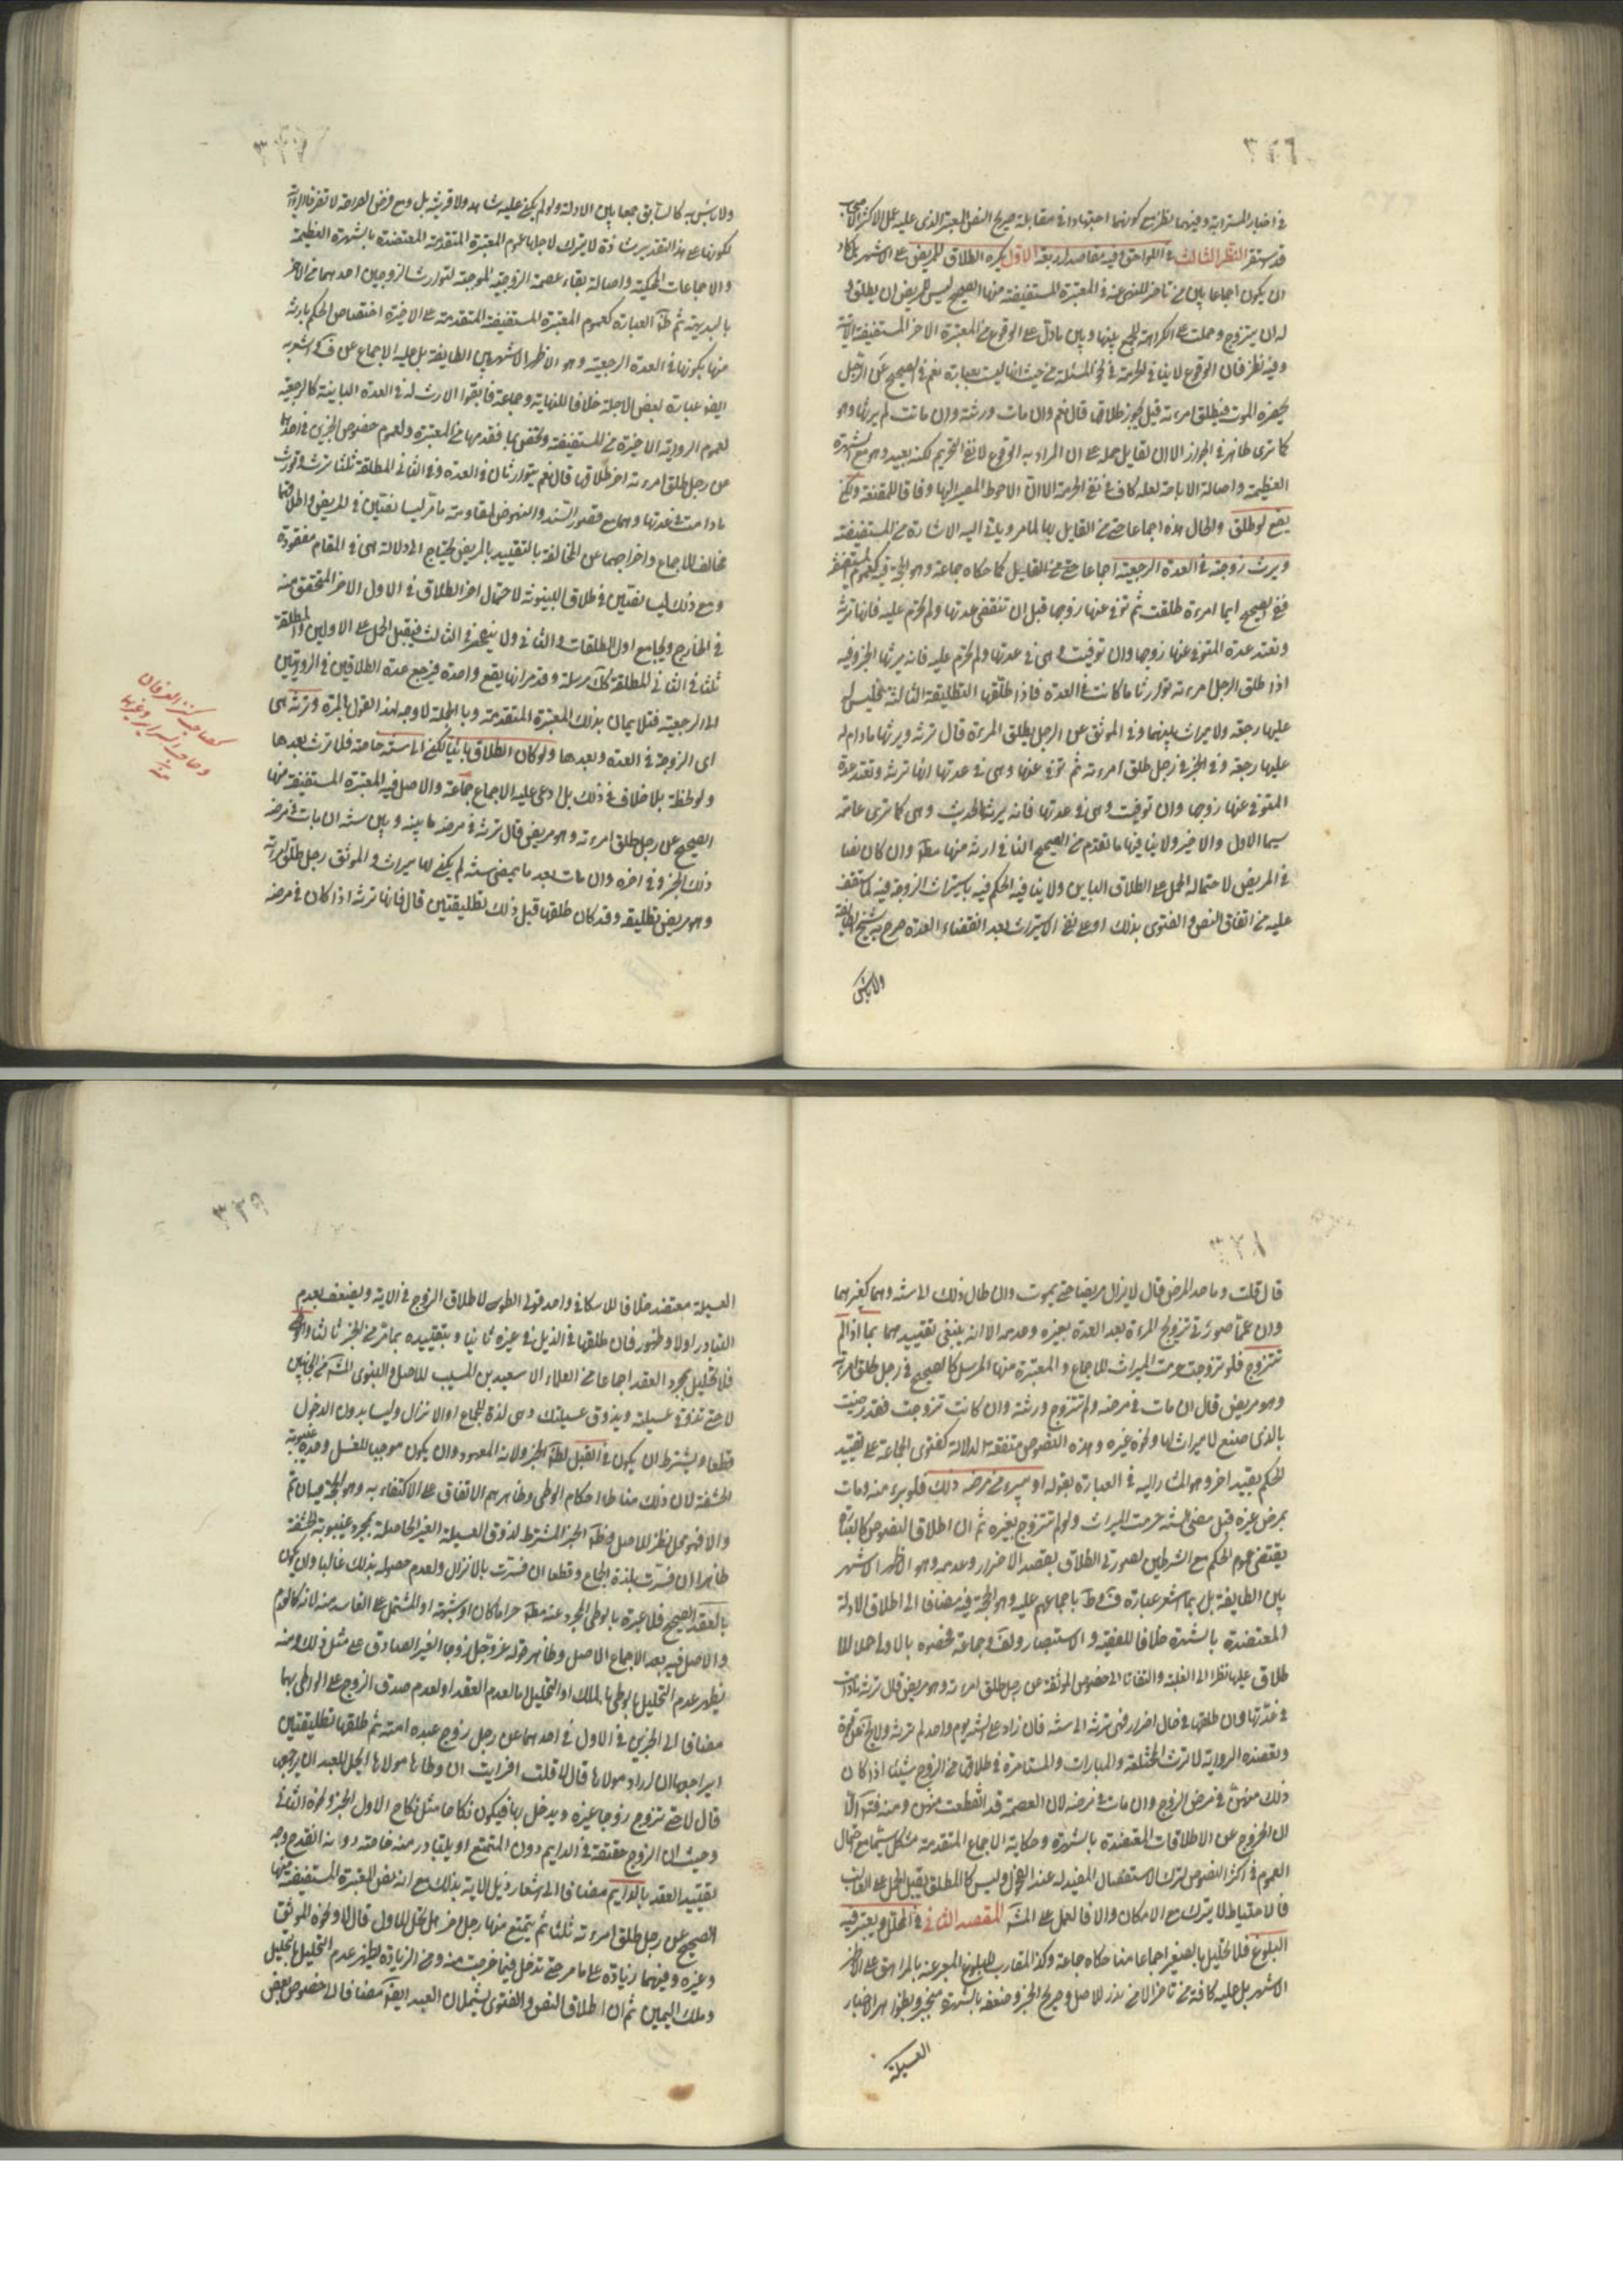 ٣٢٦
في اخبار المسترابة وفيهما نظر مع كونهما اجتهادا في مقابلة صريح النص المعتبر الذي عليه عمل الاكثر
قد استقر النظر الثالث في اللواحق وفيه مقاصد اربعة الاول يكره الطلاق للمريض على الاشهر بل كاد
ان يكون اجماعا بين من تاخر للنهي عنه في المعتبرة المستفيضة منها الصحيح ليس للمريض ان يطلق و
له ان يتزوج وحملت على الكراهة للجمع بينها وبين ما دل على الوقوع من المعتبرة الاخر المستفيضة الاتية
وفيه نظر فان الوقوع لا ينافي الحرمة في نحو المسئلة من حيث انها ليست بعبارة نعم في الصحيح عن الرجل
يحضره الموت فيطلق امرءته قبل يجوز طلاق قال نعم وان مات ورثته وان ماتت لم يرثها وهو
كما ترى ظاهر في الجواز الا ان لقايل حمله على ان المراد به الوقوع لا نفي التحريم لكنه بعيد وهو مع الشهرة
العظيمة واصالة الاباحة لعله كاف في نفي الحرمة الا ان الاحوط المصير اليها وفاقا للمقنعة ولكن
يقع لو طلق والحال هذه اجماعا حتى من القايل بها لما مر وياتي اليه الاشارة من المستفيضة
ويرث زوجته في العدة الرجعية اجماعا حتى من القايل كما حكاه جماعة وهو الحجة فيه كعموم المستفيضة
ففي الصحيح ايما امرءة طلقت ثم توفى عنها زوجها قبل ان تنقضي عدتها ولم تحرم عليه فانها ترثه
وتعتد عدة المتوفى عنها زوجها وان توفيت وهي في عدتها ولم تحرم عليه فانه يرثها الخبر وفيه
اذا طلق الرجل امرءته توارثا ما كانت في العدة فاذا طلقها التطليقة الثالثة فليس له
عليها رجعة ولا ميراث بينهما وفي الموثق عن الرجل يطلق المرءة قال ترثه ويرثها ما دام له
عليها رجعة وفي الخبر في رجل طلق امرءته ثم توفى عنها وهي في عدتها انها ترثه وتعتد عدة
المتوفى عنها زوجها وان توفيت وهي في عدتها فانه يرثها الحديث وهي كما ترى عامة
سيما الاول والاخير ولا ينافيها ما تقدم من الصحيح النافي ارثه منها مط وان كان نصا
في المريض لاحتماله الحمل على الطلاق الباين ولا ينافيه الحكم فيه باستراث الزوجة فيه كما ستقف
عليه من اتفاق النص والفتوى بذلك او على نفي الاستراث بعد انقضاء العدة صرح به شيخ الطايفة
ولا باس به كالسابق جمعا بين الادلة ولو لم يكن عليه شاهد ولا قرينة بل ومع فرض الصراحة لا تضر فالرواية
لكونها على هذا التقدير شاذة لا يترك لاجلها عموم المعتبرة المتقدمة المعتضدة بالشهرة العظيمة
والاجماعات المحكية واصالة بقاء عصمة الزوجية الموجبة لتوارث الزوجين احدهما من الاخر
بالبديهة ثم ظ العبارة كعموم المعتبرة المستفيضة المتقدمة على الاخيرة اختصاص الحكم بارثه
منها بكونها في العدة الرجعية وهو الاظهر الاشهر بين الطايفة بل عليه الاجماع
ايضا عبارة بعض الاجلة خلافا للنهاية وجماعة فابقوا الارث له في العدة الباينة كالرجعية
لعموم الرواية الاخيرة من المستفيضة
عن رجل طلق امرءته اخر طلاقها قال نعم يتوارثان في العدة وفي الثاني المطلقة ثلثا ترث وتورث
ما دامت في عدتها وهما مع قصور السند والنهوض لمقاومة ما مر ليسا نصين في المريض واطلاقهما
مخالف للاجماع واخراجهما عن المخالفة بالتقييد بالمريض يحتاج الى دلالة هي في المقام مفقودة
ومع ذلك ليسا نصين في طلاق البينونة لاحتمال اخر الطلاق في الاول الاخر المتحقق منه
في الخارج ويجامع اول الطلقات والثاني ولا ينحصر في الثالث فيقبل الحمل على الاولين والمطلقة
ثلثا في الثاني المطلقة كك مرسلة وقد مر انها يقع واحدة فيرجع عدة الطلاقين في الروايتين
الى الرجعية فتلايمان بذلك المعتبرة المتقدمة وبالجملة لا وجه لهذا القول بالمرة وترثه هي
اى الزوجة في العدة وبعدها ولو كان الطلاق باينا لكن الى سنة خاصة فلا ترث بعدها
ولو لحظة بلا خلاف في ذلك بل ادعى عليه الاجماع جماعة والاصل فيه المعتبرة المستفيضة منها
الصحيح عن رجل طلق امرءته وهو مريض قال ترثه في مرضه ما بينه وبين سنة ان مات في مرضه
ذلك الخبر وفي اخره وان مات بعد ما يمضي سنة لم يكن لها ميراث وفي الموثق رجل طلق امرءته
وهو مريض تطليقة وقد كان طلقها قبل ذلك تطليقتين قال فانها ترثه اذا كان في مرضه
٣٢٨
قال قلت وما حد المرض قال لا يزال مريضا حتى يموت وان طال ذلك الى سنة وهما كغيرهما
وان عما صورتي تزويج المرءة بعد العدة بغيره وعدمه الا انه ينبغي تقييدهما بما اذا لم
تتزوج فلو تزوجت حرمت الميراث للاجماع والمعتبرة منها المرسل كالصحيح في رجل طلق امرءته
وهو مريض قال ان مات في مرضه ولم تتزوج ورثته وان كانت تزوجت فقد رضيت
بالذي صنع لا ميراث لها ونحوه غيره وهذه النصوص متفقة الدلالة كفتوى الجماعة على تقييد
الحكم بقيد اخر وهو المشار اليه في العبارة بقوله او يبرء من مرضه ذلك فلو برء منه ومات
بمرض غيره قبل مضي السنة حرمت الميراث ولو لم تتزوج بغيره ثم ان اطلاق النصوص كالعبارة
يقتضي عموم الحكم مع الشرطين لصورتي الطلاق بقصد الاضرار وعدمه وهو الاظهر الاشهر
بين الطايفة بل ربما اشعر عبارة ف وط باجماعهم عليه وهو الحجة فيه مضافا الى اطلاق الادلة
المعتضدة بالشهرة خلافا للفقيه والاستبصار ولف وجماعة فخصوه بالاول حملا للا
طلاق عليها نظرا الى الغلبة والتفاتا الى خصوص الموثقة عن رجل طلق امرءته وهو مريض قال ترثه ما دامت
في عدتها وان طلقها في حال اضرار فهي ترثه الى سنة فان زاد على السنة يوم واحد لم ترثه
ويعضده الرواية لا ترث المختلعة والمبارات والمستامرة في طلاقها من الزوج شيئا اذا كان
ذلك منهن في مرض الزوج وان مات في مرضه لان العصمة قد انقطعت منهن ومنه
ان الخروج عن الاطلاقات المعتضدة بالشهرة وحكاية الاجماع المتقدمة مشكل سيما مع احتمال
العموم في اكثر النصوص لترك الاستفصال المفيد له عند الفحول وليس كالمطلق يقبل الحمل على الغالب
فالاحتياط لا يترك مع الامكان والا فالعمل على المش المقصد الثاني في المحلل ويعتبر فيه
البلوغ فلا تحليل بالصغير اجماعا منا حكاه جماعة وكذا المقارب للبلوغ المعبر عنه بالمراهق على الاظهر
الاشهر بل عليه كافة من تاخر الا من ندر للاصل وصريح الخبر وضعفه بالشهرة منجبر وبظواهر اخبار
العسيلة
العسيلة معتضد خلافا للاسكافي واحد قولي الطوسي لاطلاق الزوج في الاية ويضعف بعدم
التبادر اولا وظهور فان طلقها في الذيل في غيره ثانيا وبتقييده بما مر من الخبر ثالثا والوطي
فلا تحليل بمجرد العقد اجماعا من العلماء الا سعيد بن المسيب للاصل والنبوى المش من الجانبين
لا حتى تذوقي عسيلته ويذوق عسيلتك وهي لذة الجماع او الانزال وليسا بدون الدخول
قطعا ويشترط ان يكون في القبل لظ الخبر ولانه المعهود وان يكون موجبا للغسل وحده غيبوبة
الحشفة لان ذلك مناط احكام الوطي وظاهرهم الاتفاق على الاكتفاء به وهو الحجة ان تم
والا فهو محل نظر للاصل وظ الخبر المشترط لذوق العسيلة الغير الحاصلة بمجرد غيبوبة الحشفة
ظاهرا ان فسرت بلذة الجماع وقطعا ان فسرت بالانزال ولعدم حصوله بذلك غالبا وان يكون
بالعقد الصحيح فلا عبرة بالوطي المجرد عنه مط حراما كان او شبهة او المشتمل على الفاسد منه لانه كالعدم
والاصل فيه بعد الاجماع الاصل وظاهر قوله عز وجل زوجا الغير الصادق على مثل ذلك ومنه
يظهر عدم التحليل بوطيها بالملك او التحليل اما لعدم العقد او لعدم صدق الزوج على الواطي بهما
مضافا الى الخبرين في الاول في احدهما عن رجل زوج عبده امته ثم طلقها تطليقتين
ايراجعها ان اراد مولاها قال لا قلت افرايت ان وطاها مولاها ايحل للعبد ان يراجعها
قال لا حتى تزوج زوجا غيره ويدخل بها فيكون نكاحا مثل نكاح الاول الخبر ونحوه الثاني
وحيث ان الزوج حقيقة في الدايم دون المتمتع او يتبادر منه خاصة دونه انقدح وجه
تقييد العقد بالدايم مضافا الى اشعار ذيل الاية بذلك مع انه نص المعتبرة المستفيضة منها
الصحيح عن رجل طلق امرءته ثلثا ثم يتمتع منها رجل اخر هل تحل للاول قال لا ونحوه الموثق
وغيره وفيهما زيادة على ما مر حتى تدخل فيما خرجت منه ومن الزيادة يظهر عدم التحليل بالتحليل
وملك اليمين ثم ان اطلاق النص والفتوى يشملان العبد ايضا مضافا الى خصوص بعض